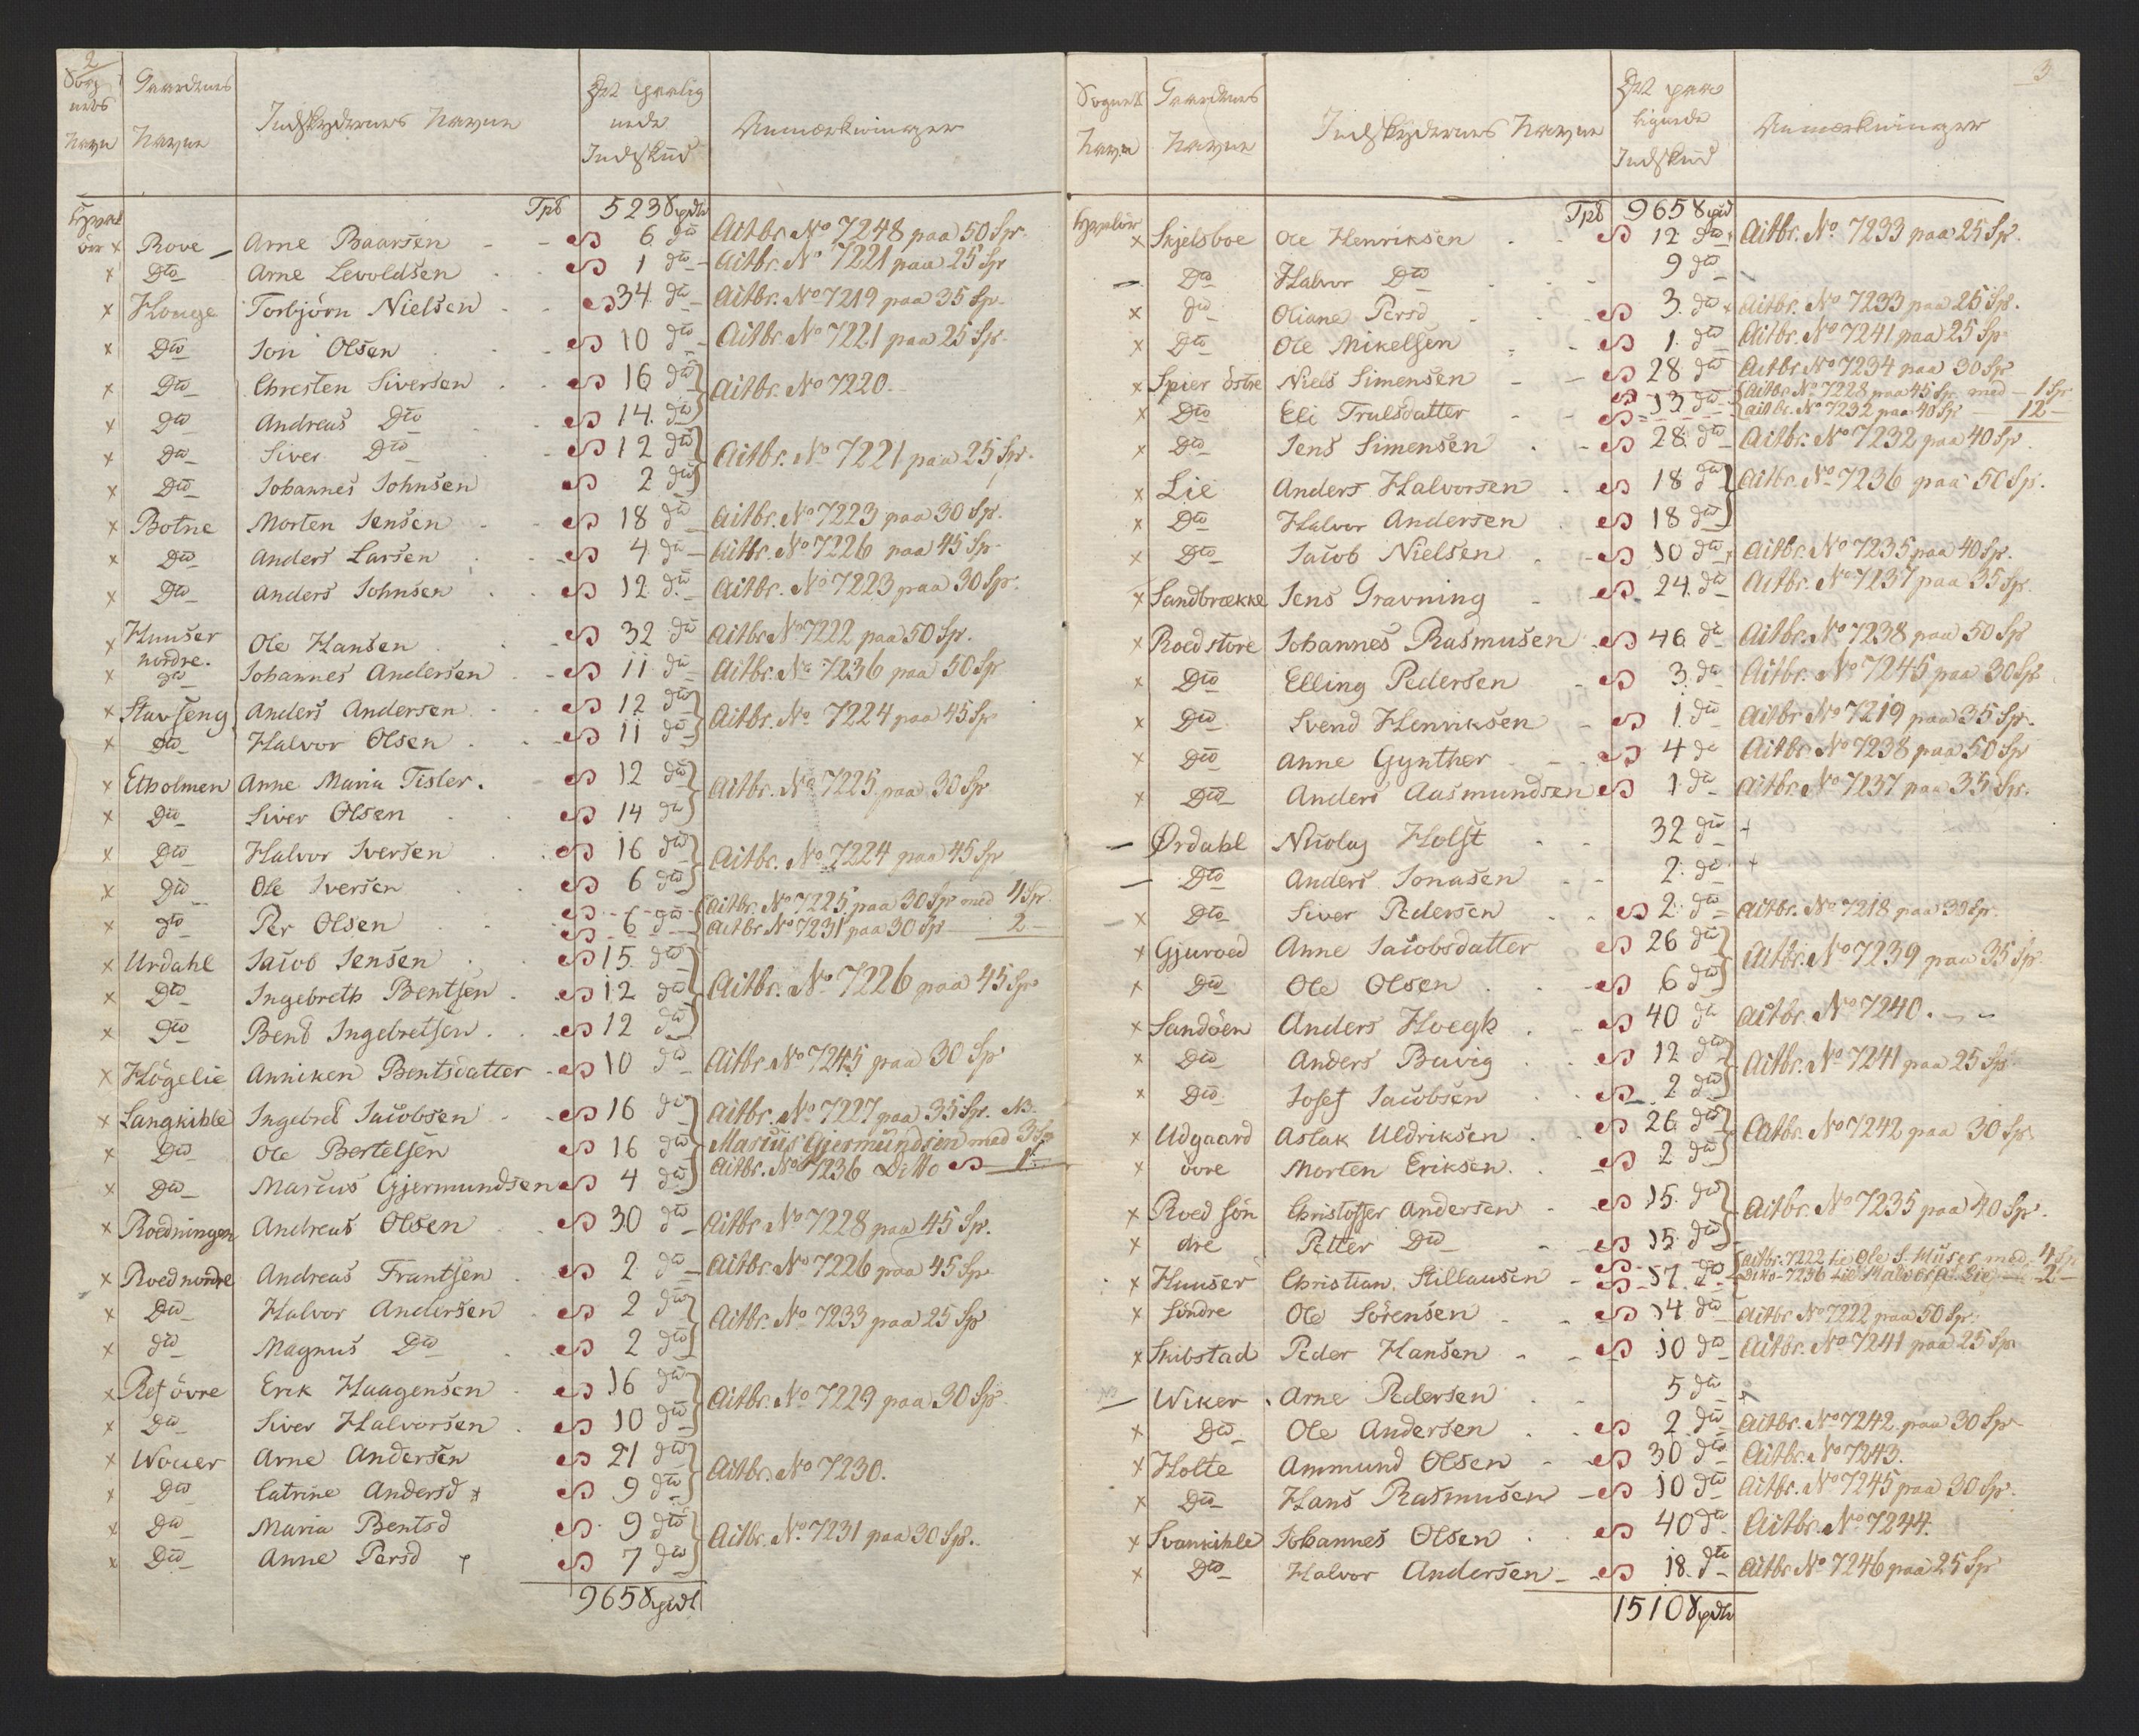 2
Sognets Navn | Gaardenes Navne | Indskydernes Navne | Det paalignede Indskud | Anmærkninger
Tpt 523 Spdlr
Hvaløer x Rove Arne Baarsen 6 dto Actbr. No 7248 paa 50 Sp.
x Dto Arne Levoldsen 1 dto Actbr. No 7221 paa 25 Sp
x Houge Torbjörn Nielsen 34 dto Actbr. No 7219 paa 35 Sp.
x Dto Jon Olsen 10 dto Actbr. No 7221 paa 25 Sp.
x Dto Christen Siversen 16 dto } Actbr. No 7220.
x Dto Andreas Dto 14 dto }
x Dto Siver Dto 12 dto } Actbr. No 7221 paa 25 Sp.
x Dto Johannes Johnsen 2 dto }
x Botne Morten Jensen 18 dto Actbr. No 7223 paa 30 Sp.
x Dto Anders Larsen 4 dto Actbr. No 7226 paa 45 Sp.
x Dto Anders Johnsen 12 dto Actbr. No 7223 paa 30 Sp.
Huuser nordre. Ole Hansen 32 dto Actbr No 7222 paa 50 Sp.
x dto Johannes Andersen 11 dto Actbr. No 7236 paa 50 Sp
x Stavseng Anders Andersen 12 dto } Actbr. No 7224 paa 45 Sp
x Dto Halvor Olsen 11 dto }
x Etholmen Anne Maria Tisler. 12 dto } Actbr. No 7225 paa 30 Sp
x Dto Siver Olsen 14 dto }
x Dto Halvor Iversen 16 dto } Actbr. No 7224 paa 45 Sp
x Dto Ole Iversen 6 dto }
x dto Per Olsen 6 dto { Actbr. No 7225 paa 30 Sp med 4 Sp.
Actbr No 7231 paa 30 Sp 2
x Urdahl Jacob Jensen 15 dto }
x Dto Ingebreth Bentsen 12 dto } Actbr. No 7226 paa 45 Sp
x Dto Bent Ingebretsen 12 dto }
x Högelie Anniken Bentsdatter 10 dto Actbr. No 7245 paa 30 Sp
x Langkihle Ingebret Jacobsen 16 dto } Actbr. No 7227 paa 35 Sp. NB.
x Dto Ole Bertelsen 16 dto } Marcus Gjermundsen med 3 Sp
x Dto Marcus Gjermundsen 4 dto } Actbr. No 7236 Ditto 1
x Roedningen Andreas Olsen 30 dto Actbr No 7228 paa 45 Sp.
x Roed nordre Andreas Frantsen 2 dto Actbr. No 7226 paa 45 Sp
x Dto Halvor Andersen 2 dto } Actbr. No 7233 paa 25 Sp
x dto Magnus Dto 2 dto }
x Ref övre Erik Haagensen 16 dto } Actbr. No 7229 paa 30 Sp
x Dto Siver Halvorsen 10 dto }
x Wouer Arne Andersen 21 dto } Actbr. No 7230.
x Dto Catrine Andersd 9 dto }
x Dto Maria Bentsd 9 dto } Actbr. No 7231 paa 30 Sp.
x Dto Anne Persd 7 dto }
965 Spdl
3
Sognets Navn | Gaardenes Navne | Indskydernes Navne | Det paalignede Indskud | Anmærkninger
Tpt 965 Spd
Hvaløer x Skjelsboe Ole Henriksen 12 dto Actbr. No 7233 paa 25 Sp.
— Dto Halvor Dto 9 dto
x dto Oliane Persd 3 dto Actbr. No 7233 paa 25 Sp.
x Dto Ole Mikelsen 1 dto Actbr. No 7241 paa 25 Sp
x Spier östre Niels Simensen 28 dto Actbr No 7234 paa 30 Sp
x Dto Eli Trulsdatter 13 dto { Actbr. No 7228 paa 45 Sp. med 1 Sp
actbr. No 7232 paa 40 Sp 12
x Dto Jens Simensen 28 dto Actbr. No 7232 paa 40 Sp.
x Lie Anders Halvorsen 18 dto } Actbr. No 7236 paa 50 Sp.
x Dto Halvor Andersen 18 dto }
x Dto Jacob Nielsen 10 dto Actbr. No 7235 paa 40 Sp.
x Sandbrække Jens Gravning 24 dto Actbr. No 7237 paa 35 Sp.
x Roed store Johannes Rasmusen 46 dto Actbr. No 7238 paa 50 Sp
x Dto Elling Pedersen 3 dto Actbr. No 7245 paa 30 Sp
x Dto Svend Henriksen 1 dto Actbr No 7219 paa 35 Sp.
x Dto Anne Gynther 4 dto Actbr No 7238 paa 50 Sp
x Dto Anders Aasmundsen 1 dto Actbr. No 7237 paa 35 Sp.
— Ørdahl Nicolay Holst 32 dto +
— Dto Anders Jonasen 2 dto +
x Dto Siver Pedersen 2 dto Actbr. No 7218 paa 30 Sp.
x Gjuroed Anne Jacobsdatter 26 dto } Actbr. No 7239 paa 35 Sp
x Dto Ole Olsen 6 dto }
x Sandöen Anders Hoegh 40 dto Actbr. No 7240.
x Dto Anders Buvig 12 dto } Actbr. No 7241 paa 25 Sp
x Dto Josef Jacobsen 2 dto }
x Udgaard Aslak Uldriksen 26 dto } Actbr. No 7242 paa 30 Sp.
x övre Morten Eriksen 2 dto }
x Roed sön Christoffer Andersen 15 dto } Actbr. No 7235 paa 40 Sp.
x dre Petter Dto 15 dto }
x Huuser Christian Stillausen 57 dto { Actbr. 7222 til Ole S. Huser med 4 Sp
Ditto 7236 til Halvor A. Lie 2
x Söndre Ole Sörensen 14 dto Actbr No 7222 paa 50 Sp.
x Skibstad Peder Hansen 10 dto Actbr. No 7241 paa 25 Sp
— Wiker Arne Pedersen 5 dto
x Dto Ole Andersen 2 dto Actbr. No 7242 paa 30 Sp
x Holte Ammund Olsen 30 dto Actbr. No 7243.
x Dto Hans Rasmusen 10 dto Actbr. No 7245 paa 30 Sp.
x Svankihle Johannes Olsen 40 dto Actbr. No 7244.
x Dto Halvor Andersen 18 dto Actbr No 7246 paa 25 Sp
1510 Spdlr